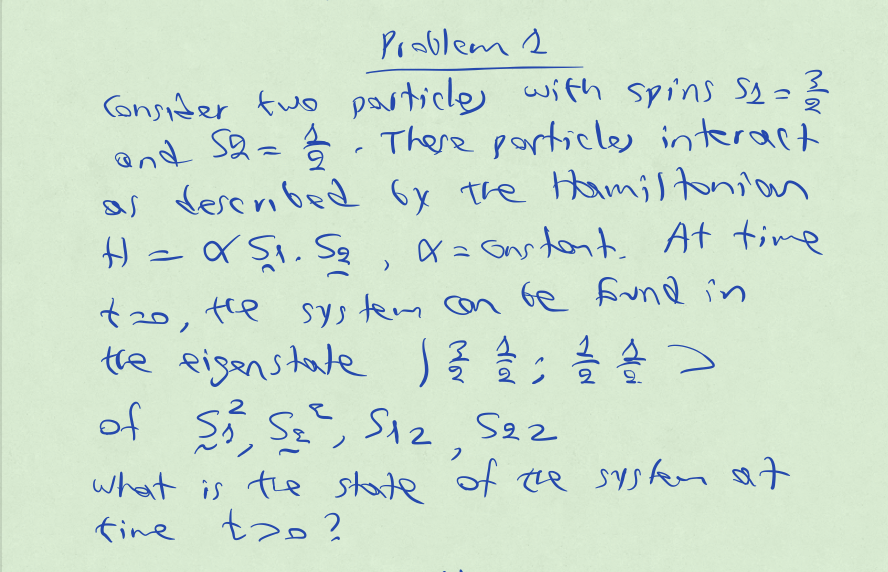 Problem 1
Consider two particles with spins S1 = 3/2
and S2 = 1/2. These particles interact
as described by the Hamiltonian
H = α S1 . S2 , α = constant. At time
t=0, the system can be found in
the eigenstate | 3/2 1/2 ; 1/2 1/2 >
of S1², S2², S1z, S2z
what is the state of the system at
time t>0?